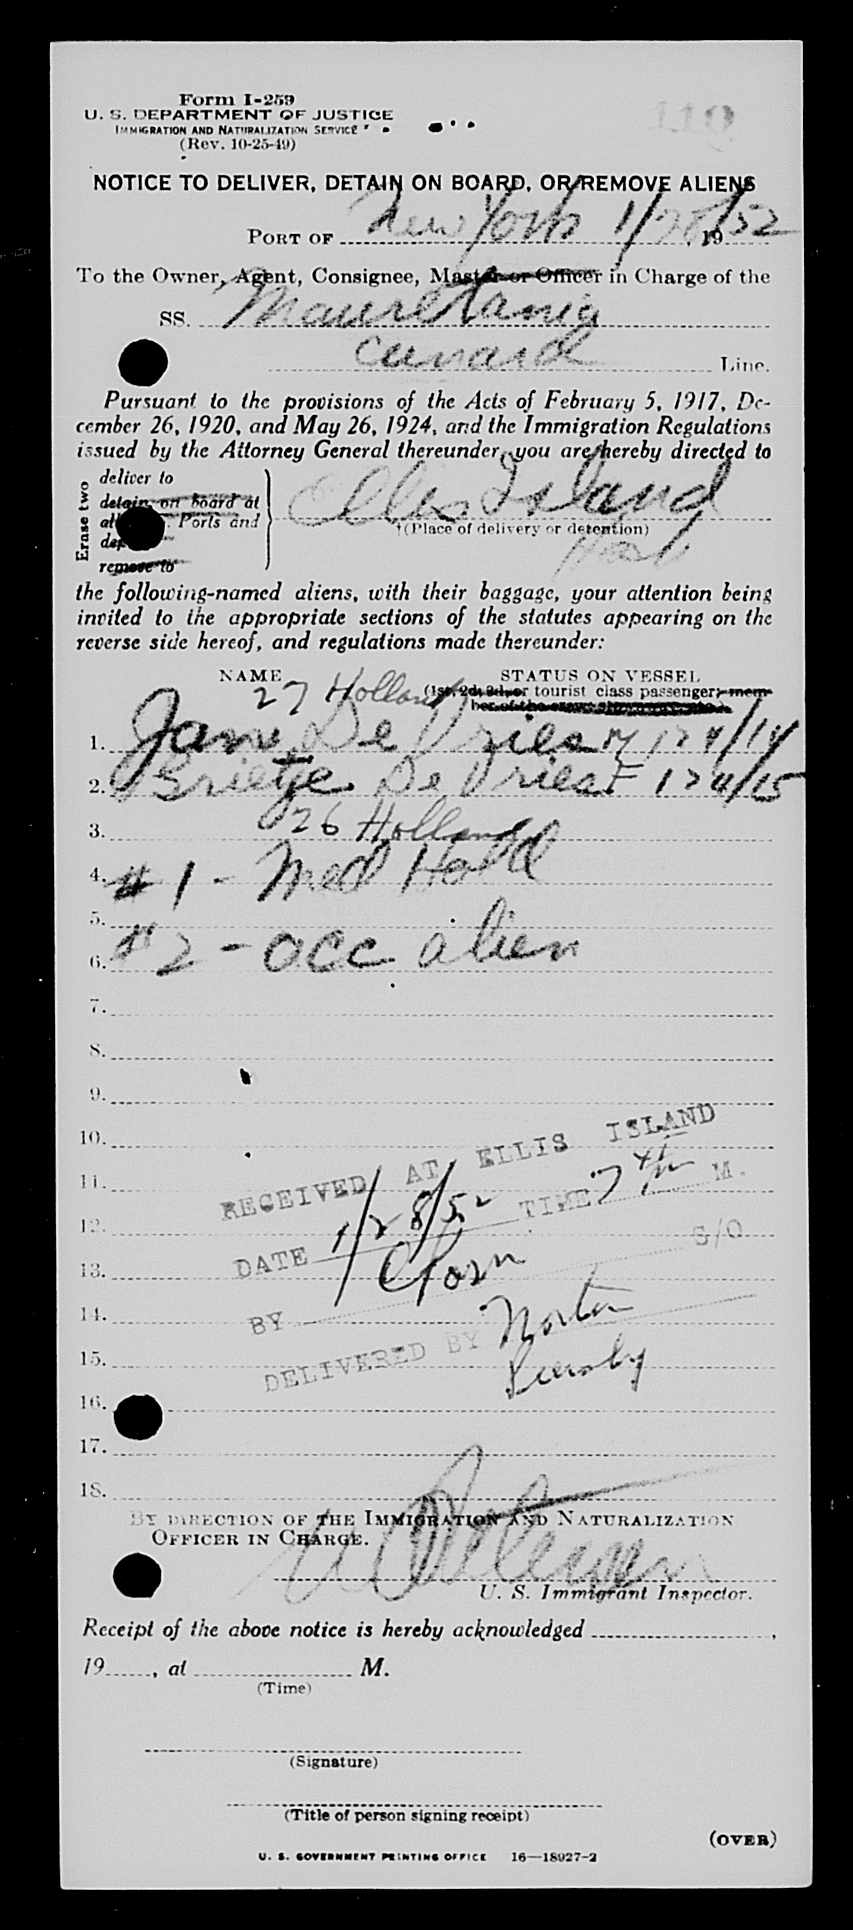 110
Form I-259
U. S. DEPARTMENT OF JUSTICE
IMMIGRATION AND NATURALIZATION SERVICE
(Rev. 10-25-49)
NOTICE TO DELIVER, DETAIN ON BOARD, OR REMOVE ALIENS
PORT OF New York 1/28/52 19
To the Owner, Agent, Consignee, Master or Officer in Charge of the
SS. Mauretania
Cunard Line.
Pursuant to the provisions of the Acts of February 5, 1917, De-
cember 26, 1920, and May 26, 1924, and the Immigration Regulations
issued by the Attorney General thereunder, you are hereby directed to
Erase two
deliver to
detain on board at
Ports and
remove to
Ellis Island
†(Place of delivery or detention)
Hosp
the following-named aliens, with their baggage, your attention being
invited to the appropriate sections of the statutes appearing on the
reverse side hereof, and regulations made thereunder:
NAME STATUS ON VESSEL
27 Holland (1st, 2d, 3d, or tourist class passenger; mem-
ber of the crew
1. Jan De Vries M 174/14
2. Grietje De Vries F 174/15
3. 26 Holland
4. #1 - Med Hold
5.
6. #2 - acc alien
7.
8.
9.
10.
11.
12.
13.
14.
15.
16.
17.
18.
RECEIVED AT ELLIS ISLAND
DATE 1/28/52 TIME 7 M.
BY S/O
DELIVERED BY Norton
BY DIRECTION OF THE IMMIGRATION AND NATURALIZATION
OFFICER IN CHARGE.
U. S. Immigrant Inspector.
Receipt of the above notice is hereby acknowledged ,
19 , at M.
(Time)
(Signature)
(Title of person signing receipt)
(OVER)
U. S. GOVERNMENT PRINTING OFFICE 16—18927-2